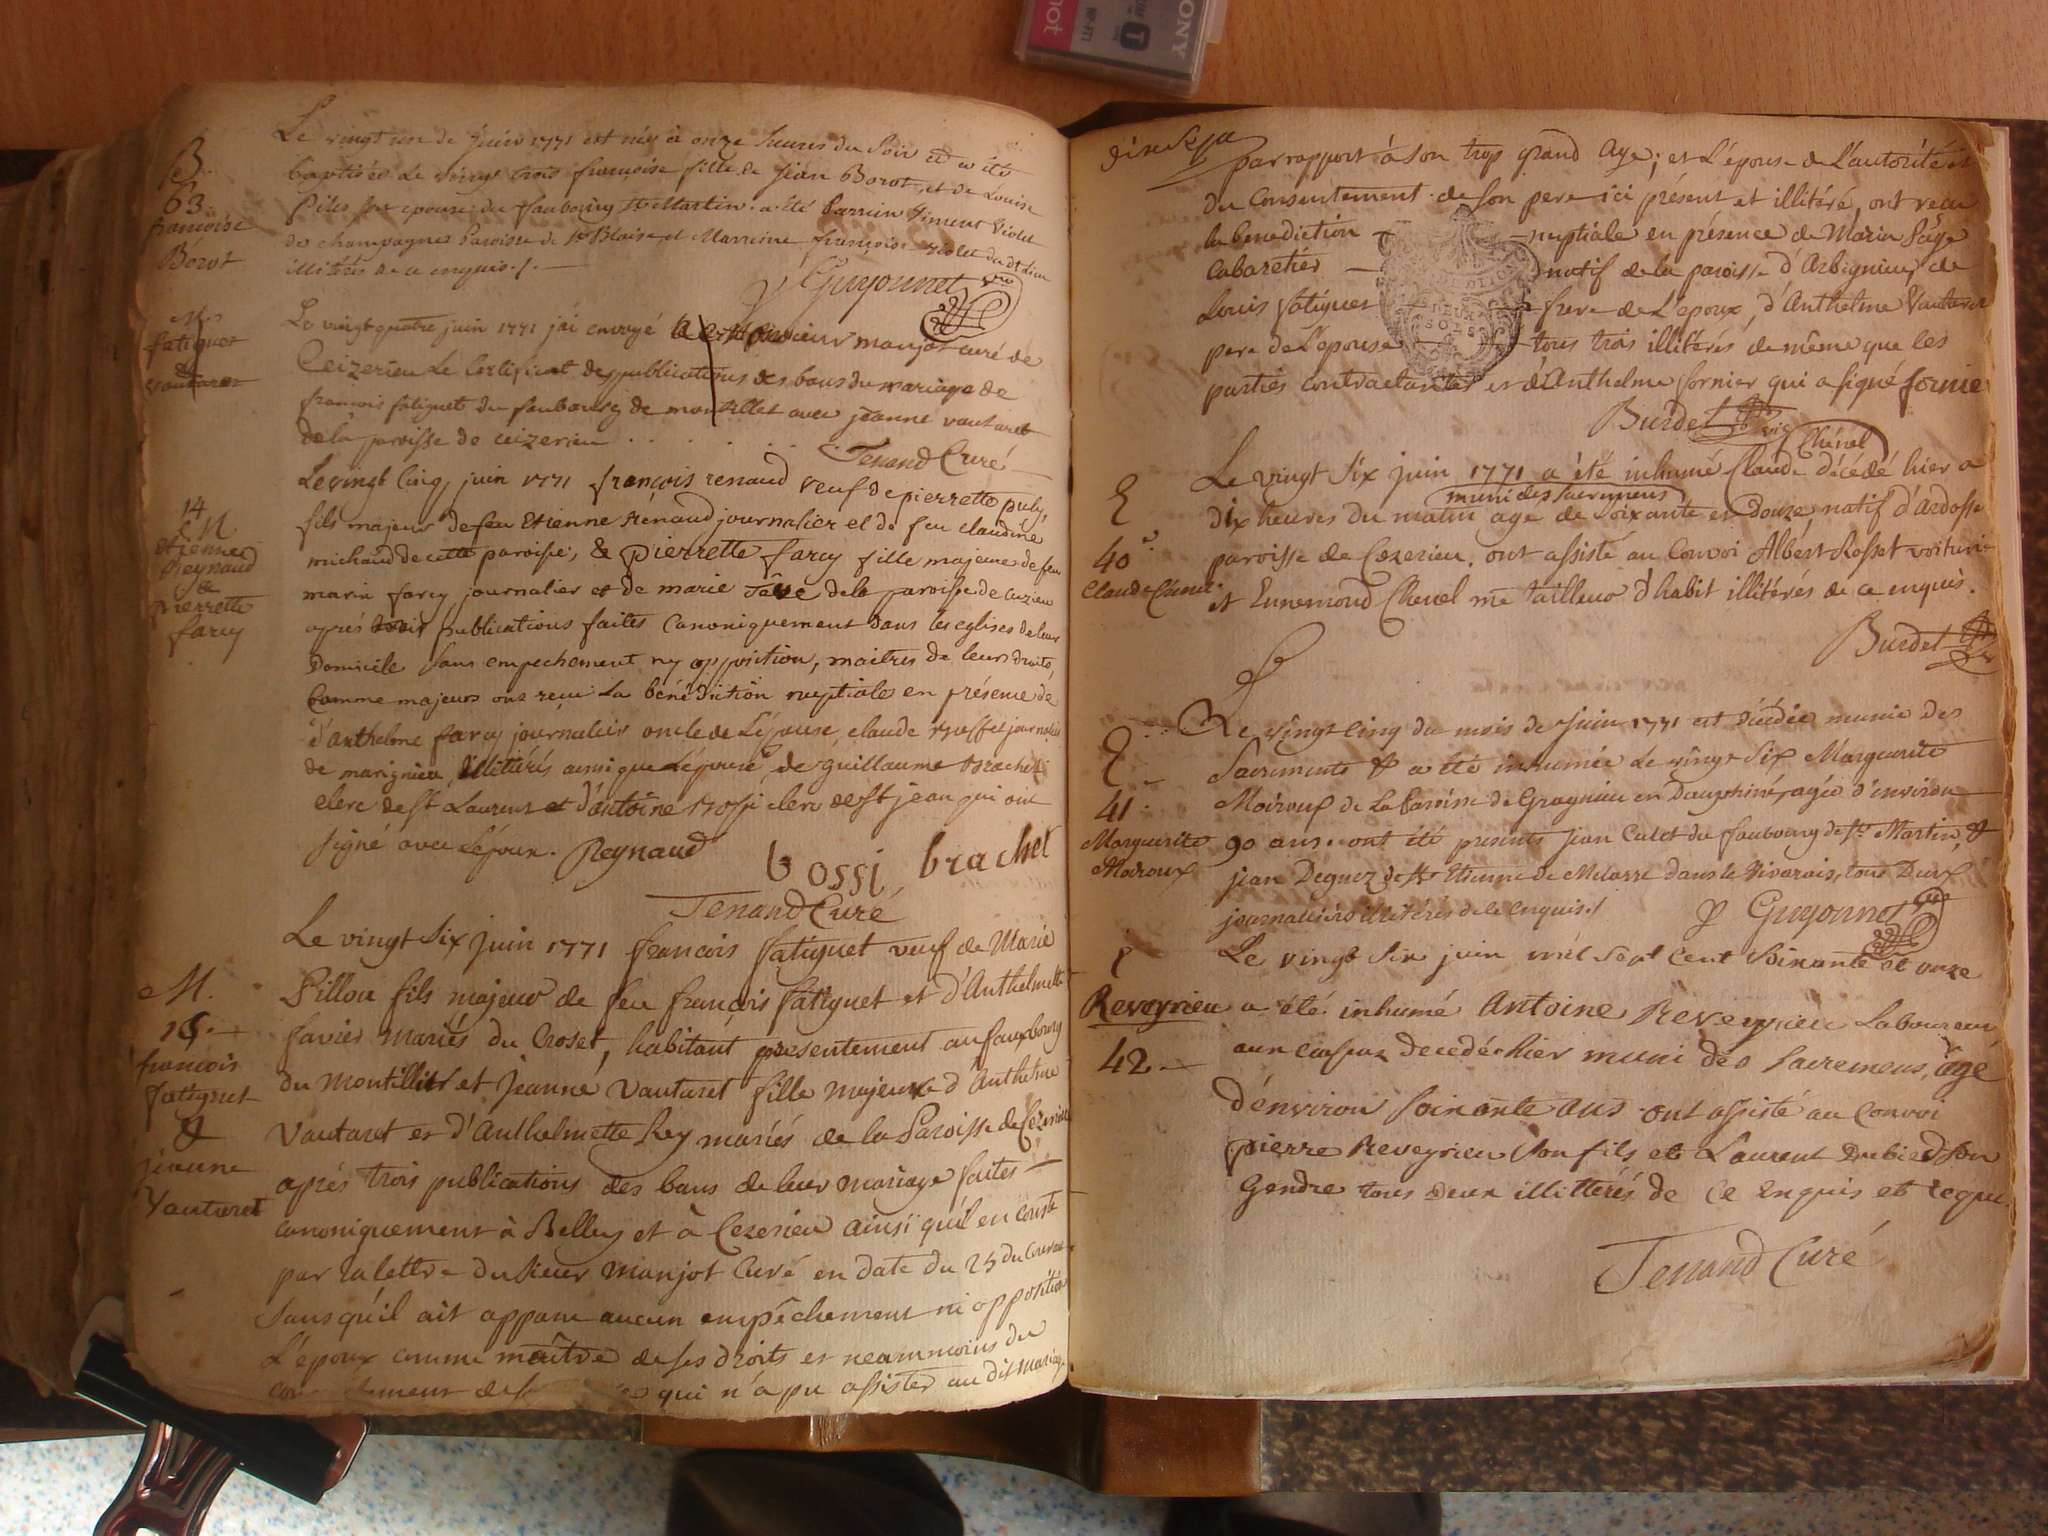 B.
63.
françoise
Borot
Le vingt un de Juin 1771 est née à onze heures du Soir et a été
baptisée Le vingt trois françoise fille de jean Borot, et de Louise
épouse du faubourg St Martin. a été Parrein Violet
de champagne Paroisse de St Blaise et Marreine françoise violet du dt Lieu
illitérés de ce enquis./.
Guyonnet vic
M.
fatiguet
&
vautaret
Le vingt quatre juin 1771 j'ai envoyé a monjot curé de
Ceizerieu Le Certificat des publications des bans du mariage de
françois fatiguet du faubourg de montillet avec jeanne vautaret
de la paroisse de ceizerieu . . . . . .
Tenand Curé
14
M.
etienne
Reynaud
&
pierrette
farcy
Le vingt Cinq juin 1771 françois renaud veuf de pierrette
fils majeur de feu Etienne Renaud journalier et de feu claudine
michaud de cette paroisse, & pierrette farcy fille majeure de feu
marin farcy journalier et de marie de la paroisse de
après trois publications faites Canoniquement dans les eglises de leurs
Domicile Sans empechement ny opposition, maitres de leurs droits
Comme majeurs ont reçu La bénédiction nuptiale en présence de
d'anthelme farcy journalier oncle de L'épouse, claude journalier
de marignieu illitérés ainsi que L'épouse, de guillaume brachet
clerc de St Laurent et d'antoine Bossi clerc de St jean qui ont
signé avec L'époux. Reynaud
bossi, brachet
Tenand Curé
M.
15.
francois
fatiguet
&
jeanne
Vautaret
Le vingt Six juin 1771 francois fatiguet veuf de Marie
Pillon fils majeur de feu françois fatiguet et d'Anthelmette
favier mariés du Croset, habitant presentement au fauxbourg
du Montillet et Jeanne Vautaret fille majeure d'Anthelme
Vautaret et d'Anthelmette Rey mariés de la Paroisse de Cezerieu
après trois publications des bans de leur mariage faites
canoniquement à Belley et à Cezerieu ainsi qu'il en conste
par la lettre du Sieur Monjot Curé en date du 25 du Courant
Sans qu'il ait apparu aucun empêchement ni opposition
L'epoux comme maître de ses droits et neammoins du
qui n'a pu assister au dit mariage
par rapport à son trop grand Age; et L'épouse de L'autorité et
du Consentement de son pere ici présent et illitéré, ont recu
la benediction nuptiale en présence de Marin Page
Cabaretier natif de la paroisse d'Arbignieu, de
Louis fatiguet frere de L'epoux, d'Anthelme Vautaret
pere de L'epouse tous trois illitérés de même que les
parties contractantes et d'Anthelme fornier qui a signé fornie
DEUX
SOLS
Burdet vic
E
40e
Claude Chenel
Chenel
Le vingt Six juin 1771 a été inhumé Claude décédé hier a
muni des sacremens
dix heures du matin age de soixante et Douze natif d'ardosse
paroisse de Cezerieu, ont assisté au Convoi Albert Rosset voiturie
et Ennemond Chenel me tailleur d'habit illitérés de ce enquis.
Burdet
E
41.
Marguerite
Moiroux
Le vingt Cinq du mois de Juin 1771 est décédée munie des
Sacrements & a été inhumée Le vingt Six Marguerite
Moiroux de La Paroisse de Gragnieu en Dauphiné, agée d'environ
90 ans. ont été presents Jean Culet du faubourg de St Martin, &
jean Deguez de St Etienne de dans le Vivarois, tous Deux
journaliers illitérés de ce enquis./
Guyonnet vic
Reveyrieu
42
Le vingt Six juin mil Sept Cent Soixante et onze
a été inhumé Antoine Reveyrieu Laboureur
decedé hier muni des sacremens, agé
d'environ soixante ans ont assisté au Convoi
pierre Reveyrieu Son fils et Laurent Son
Gendre tous deux illittérés de Ce Enquis et requi.
Tenand Curé
SONY